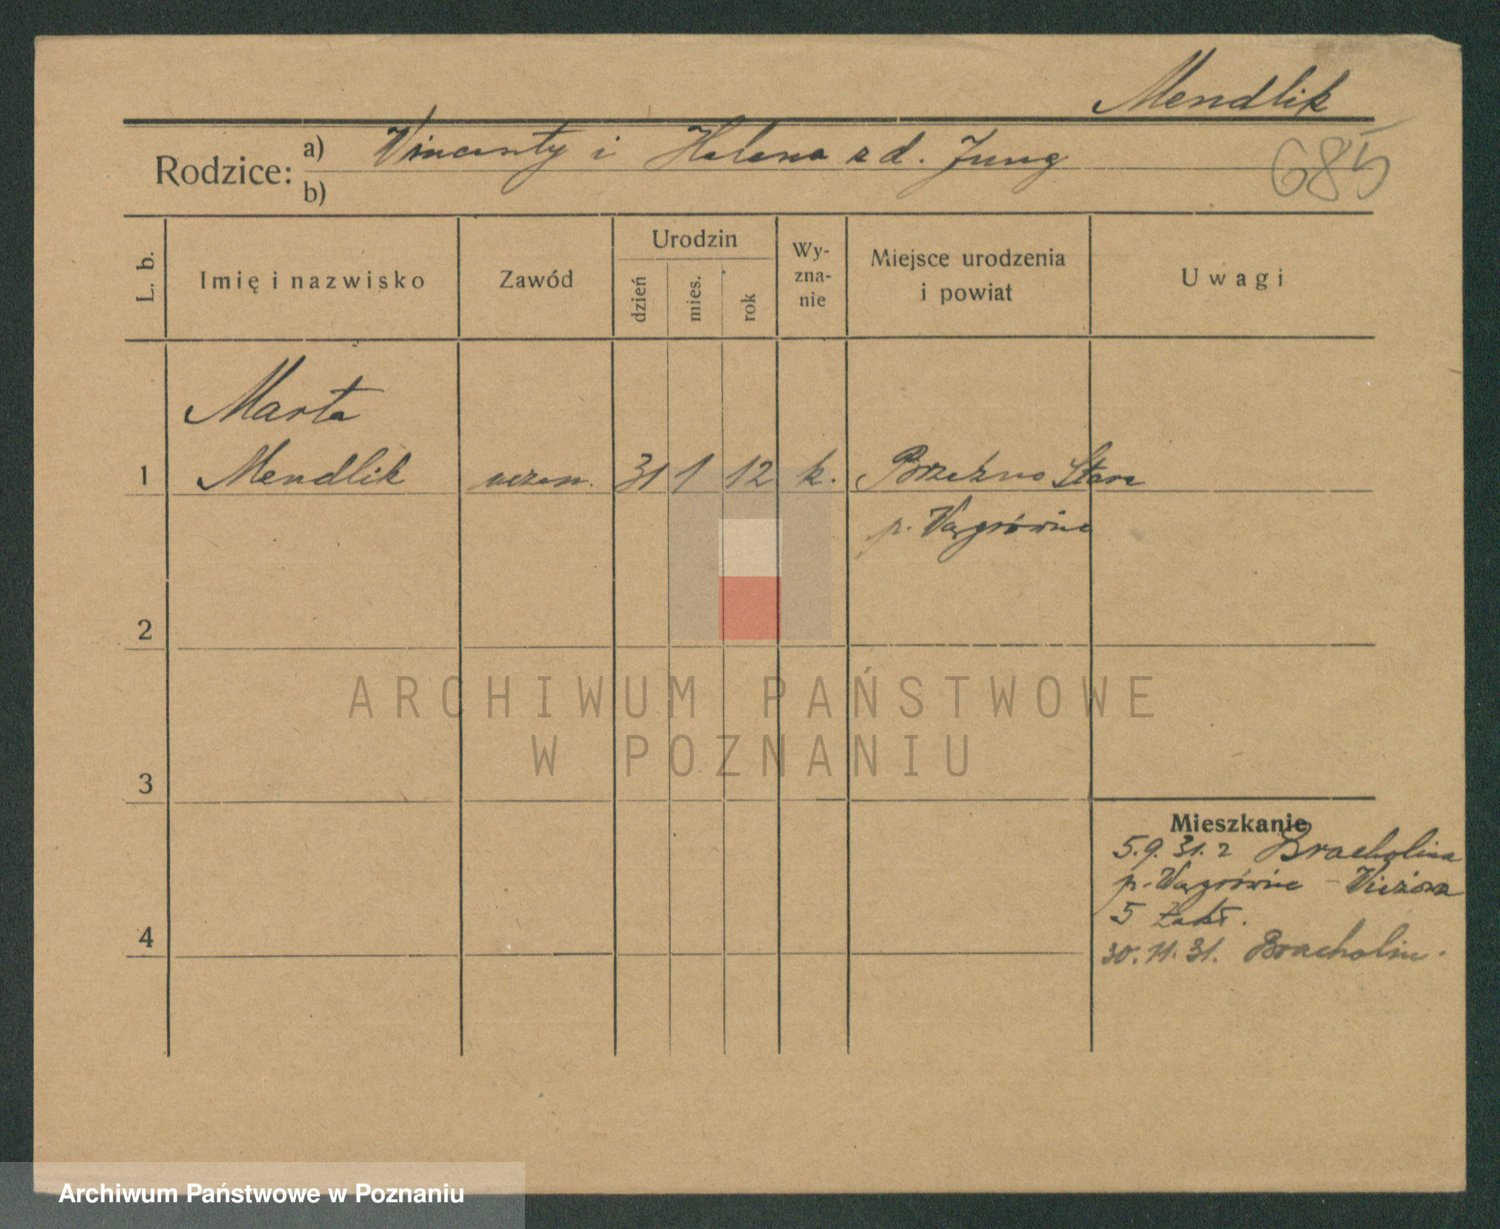 Mendlik
Rodzice:
a) Vincenty i Helena z d. Jung
b)
685
L. b.
Imię i nazwisko
Zawód
Urodzin
dzień
mies.
rok
Wy-
zna-
nie
Miejsce urodzenia
i powiat
Uwagi
Marta
1 Mendlik uczen. 31 1 12 k. Brzeźno Stare
p. Wągrówiec
2
3
4
Mieszkanie
5.9.31. z Bracholina
p. Wągrówiec -
5 Zakł.
30.11.31. Bracholin.
ARCHIWUM PAŃSTWOWE
W POZNANIU
Archiwum Państwowe w Poznaniu